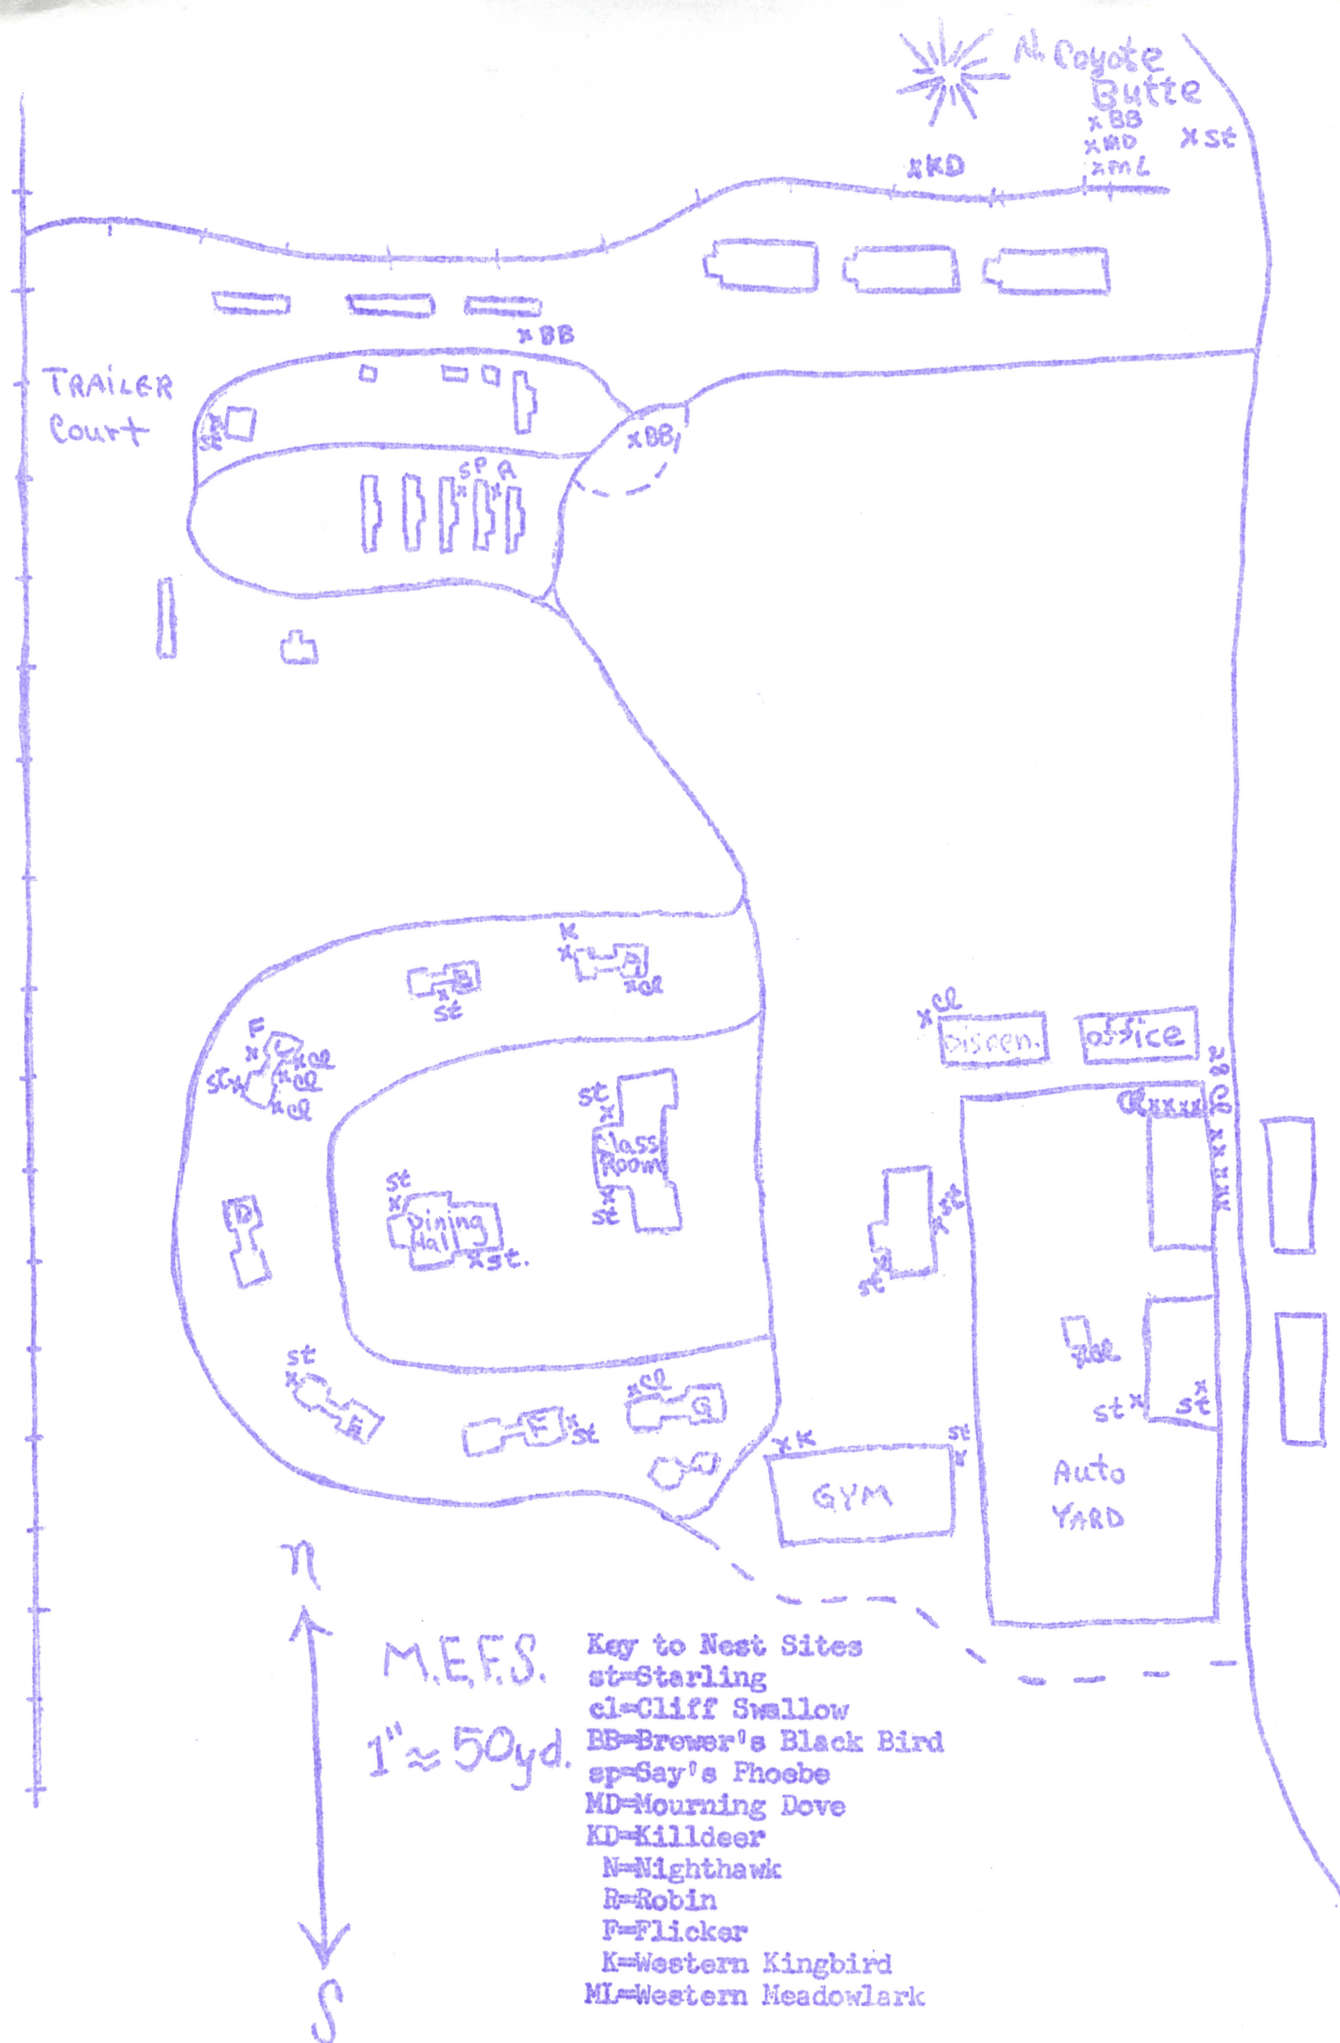 N. Coyote
Butte
x BB
x MD
x ML
x st
x KD
x BB
TRAILER
Court
st
x BB
SP
x
R
x
K
x
B
x
st
A
x cl
F
x
C
x cl
x cl
x cl
st x
x cl
Discen.
office
28 cl xxxxxx
cl xxxx
st
x
Class
Room
x
st
st
x
Dining
Hall
x st.
D
x st
x
st
x cl
st
x
E
F
x
st
x cl
G
st x
x
st
x K
st
x
GYM
Auto
YARD
n
M.E.F.S.
1" ≈ 50yd.
S
Key to Nest Sites
st=Starling
cl=Cliff Swallow
BB=Brewer's Black Bird
sp=Say's Phoebe
MD=Mourning Dove
KD=Killdeer
N=Nighthawk
R=Robin
F=Flicker
K=Western Kingbird
ML=Western Meadowlark